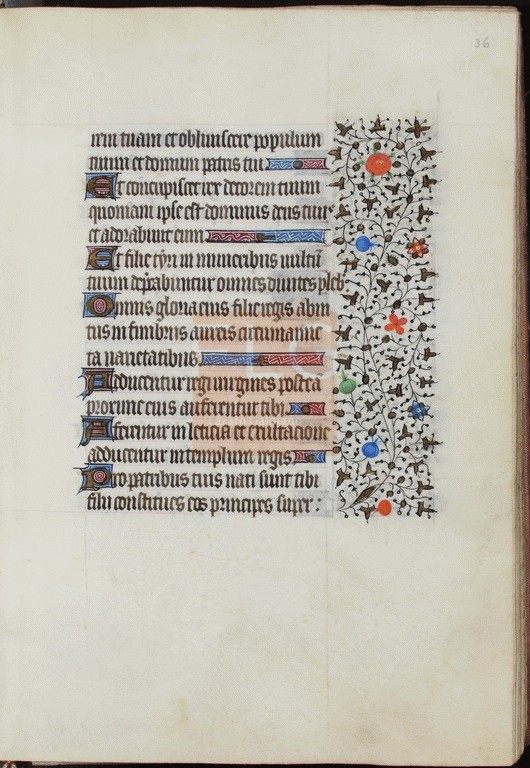 36
rem tuam et obliviscere populum
tuum et domum patris tui
Et concupiscet rex decorem tuum
quoniam ipse est dominus deus tuus
et adorabunt eum
Et filie tyri in muneribus vultū
tuum dep̄cabuntur omnes divites pleb
Omnis gloria eius filie regis abin
tus in fimbriis aureis circumamic
ta varietatibus
Adducentur regi virgines postea
proxime eius afferentur tibi
Afferentur in leticia et exultatione
adducentur in templum regis
Pro patribus tuis nati sunt tibi
filii constitues eos principes super :